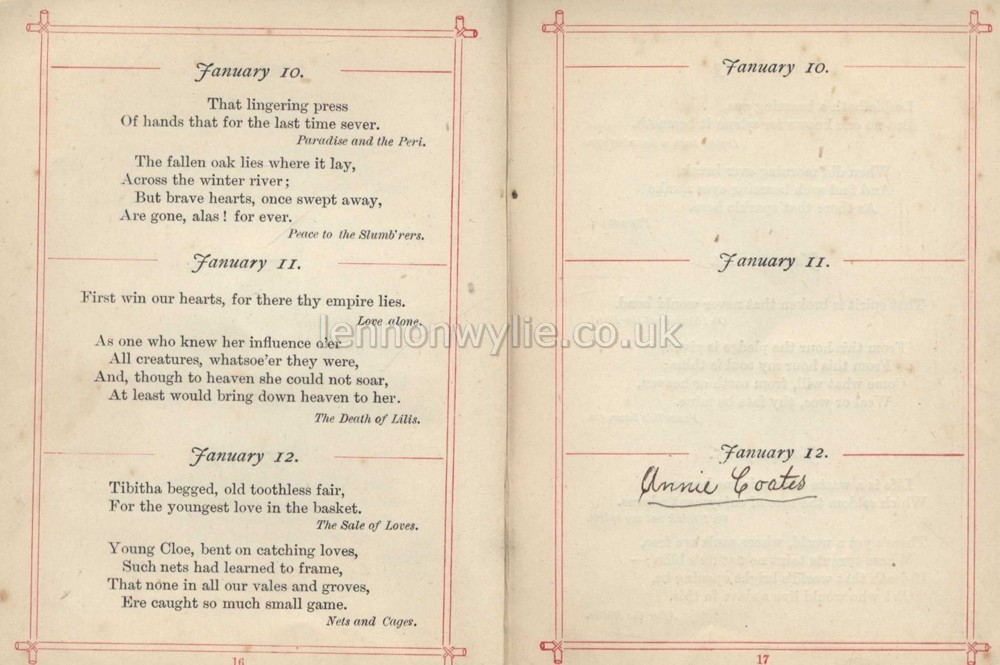 January 10.
That lingering press
Of hands that for the last time sever.
Paradise and the Peri.
The fallen oak lies where it lay,
Across the winter river;
But brave hearts, once swept away,
Are gone, alas! for ever.
Peace to the Slumb'rers.
January 11.
First win our hearts, for there thy empire lies.
Love alone.
As one who knew her influence o'er
All creatures, whatsoe'er they were,
And, though to heaven she could not soar,
At least would bring down heaven to her.
The Death of Lilis.
January 12.
Tibitha begged, old toothless fair,
For the youngest love in the basket.
The Sale of Loves.
Young Cloe, bent on catching loves,
Such nets had learned to frame,
That none in all our vales and groves,
Ere caught so much small game.
Nets and Cages.
16
January 10.
January 11.
January 12.
Annie Coates
17
lennonwylie.co.uk